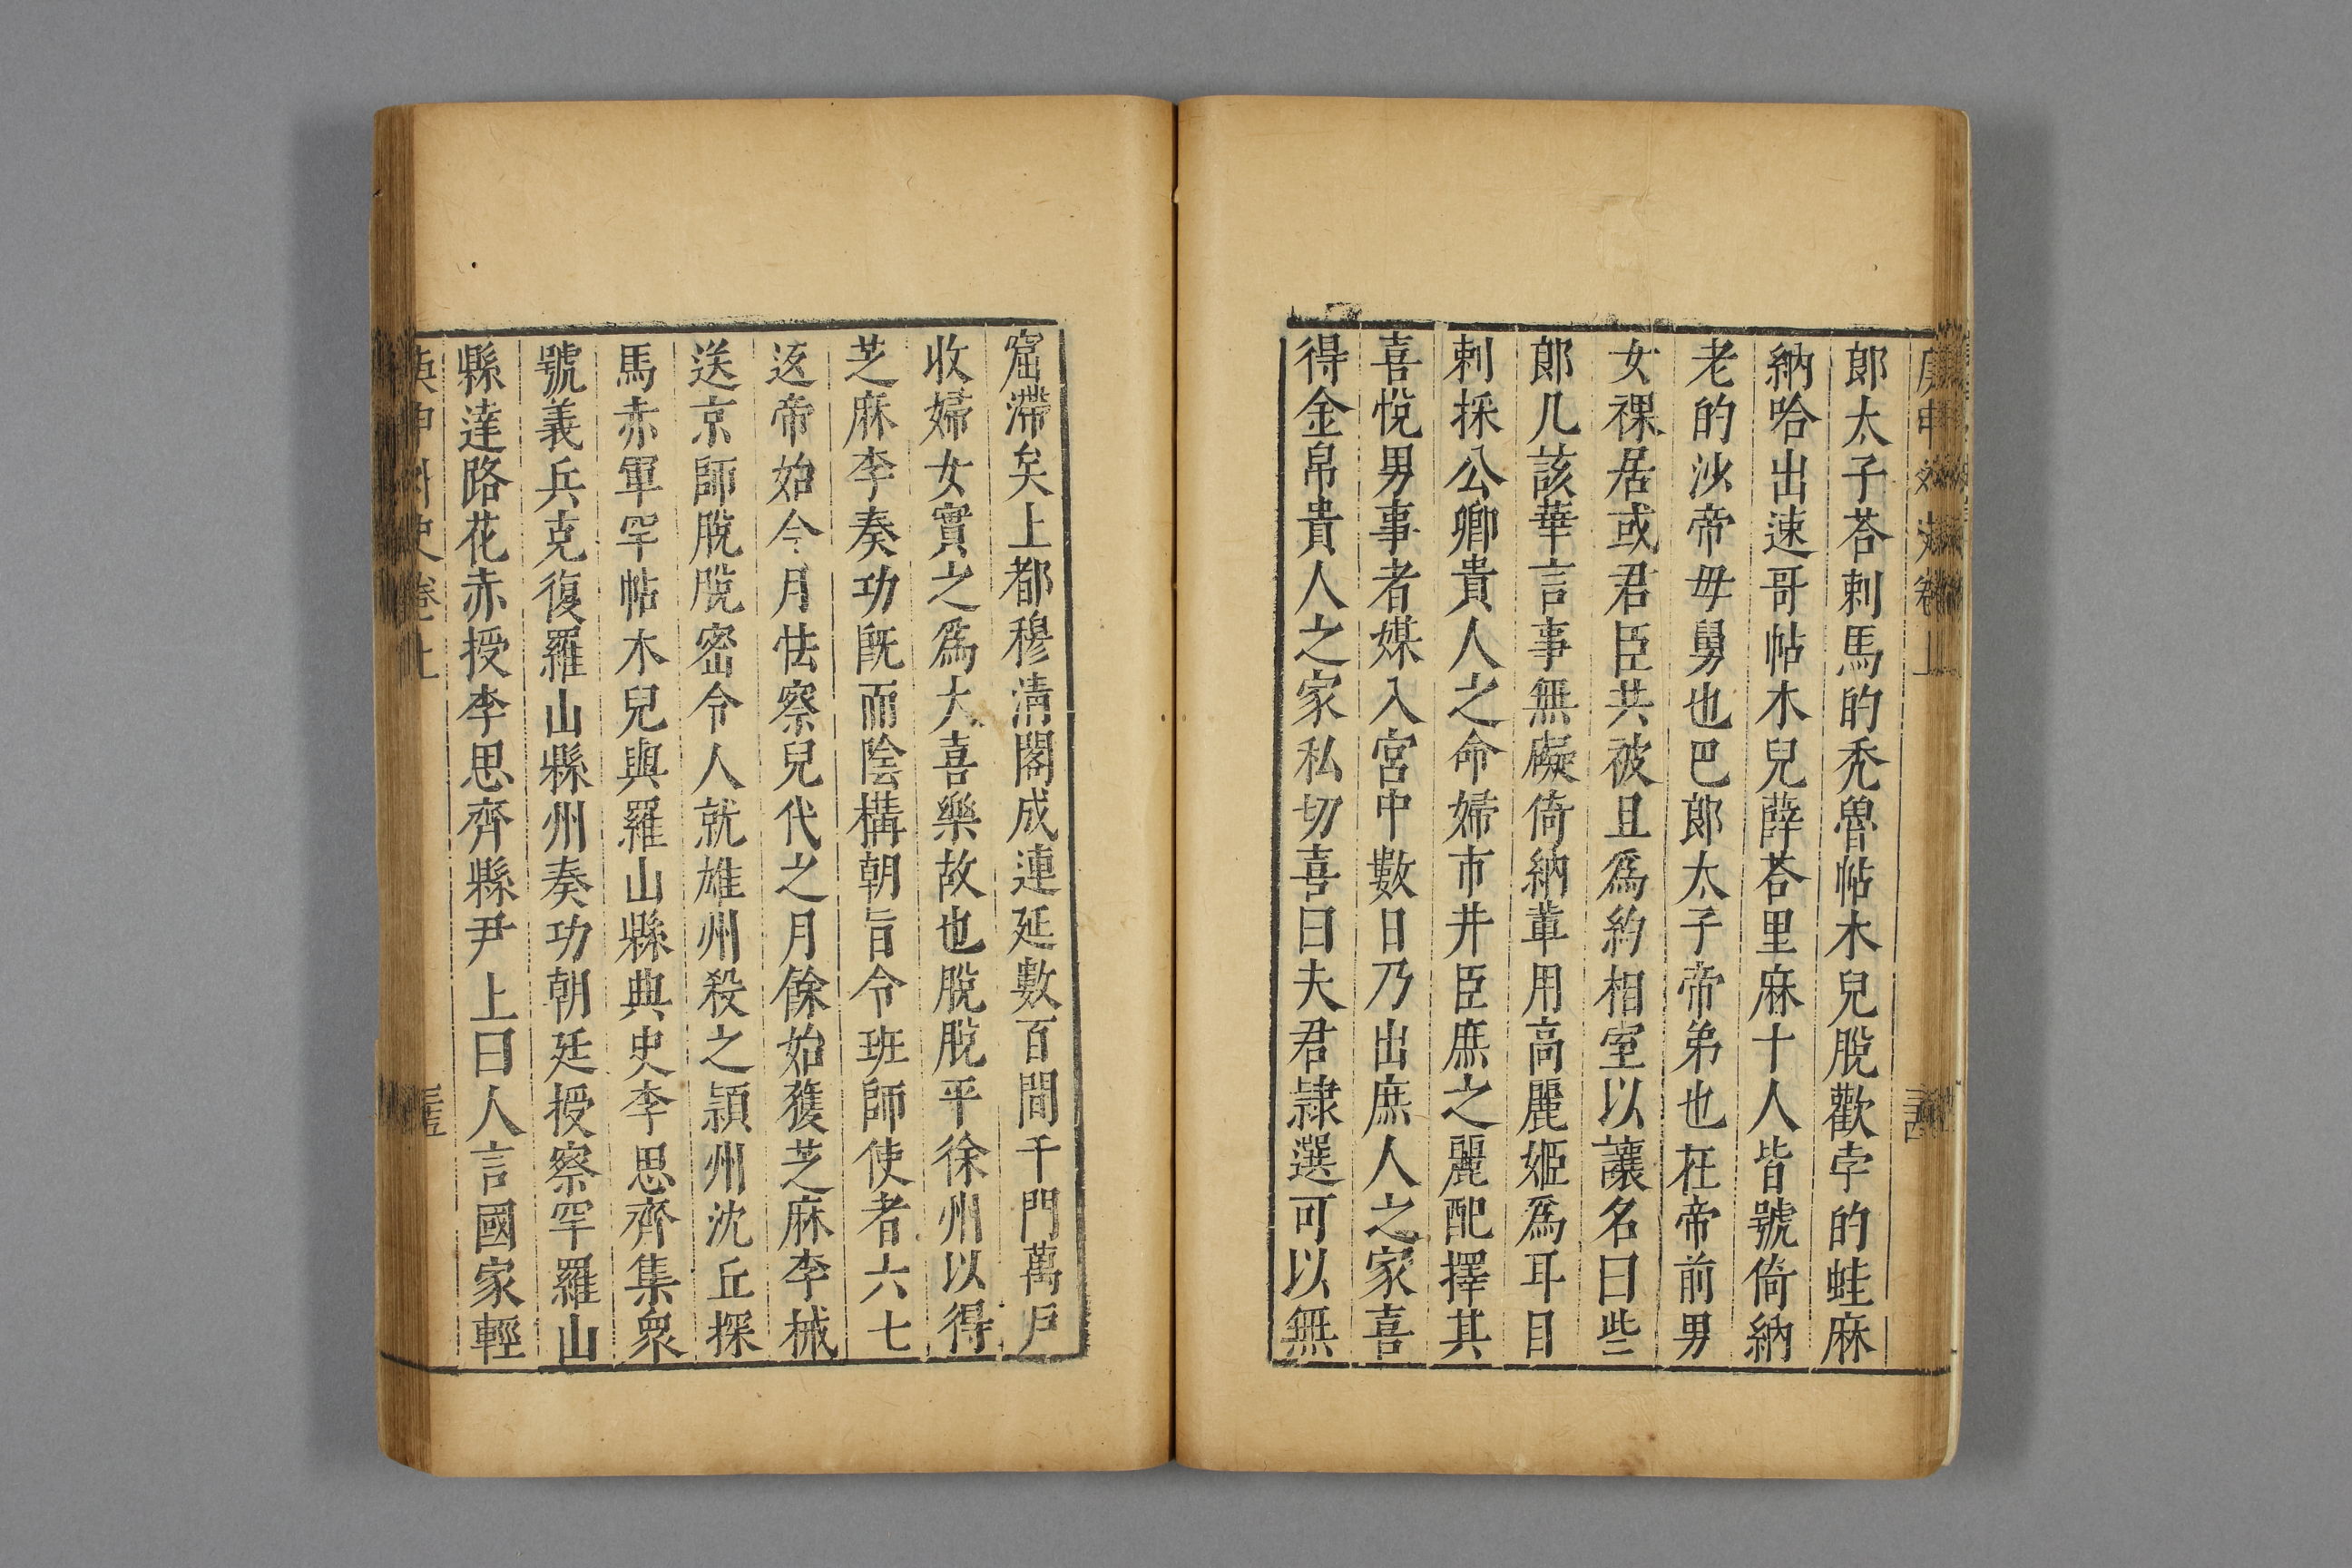 庚申外史卷上
郎太子荅剌馬的禿魯帖木兒脫歡孛的蛙麻
納哈出速哥帖木兒薛荅里麻十人皆號倚納
老的沙帝母舅也巴郎太子帝弟也在帝前男
女裸居或君臣共被且爲約相室以讓名曰些
郎兀該華言事無礙倚納軰用高麗姬爲耳目
刺採公卿貴人之命婦市井臣庶之麗配擇其
喜悅男事者媒入宮中數日乃出庶人之家喜
得金帛貴人之家私切喜曰夫君隷選可以無
窟滯矣上都穆清閣成連延數百間千門萬戶
收婦女實之爲大喜樂故也脫脫平徐州以得
芝麻李奏功旣而陰構朝旨令班師使者六七
返帝始令月怯察兒代之月餘始獲芝麻李械
送京師脫脫密令人就雄州殺之潁州沈丘探
馬赤軍罕帖木兒與羅山縣典史李思齊集衆
號義兵克復羅山縣州奏功朝廷授察罕羅山
縣達路花赤授李思齊縣尹上曰人言國家輕
庚申外史卷上